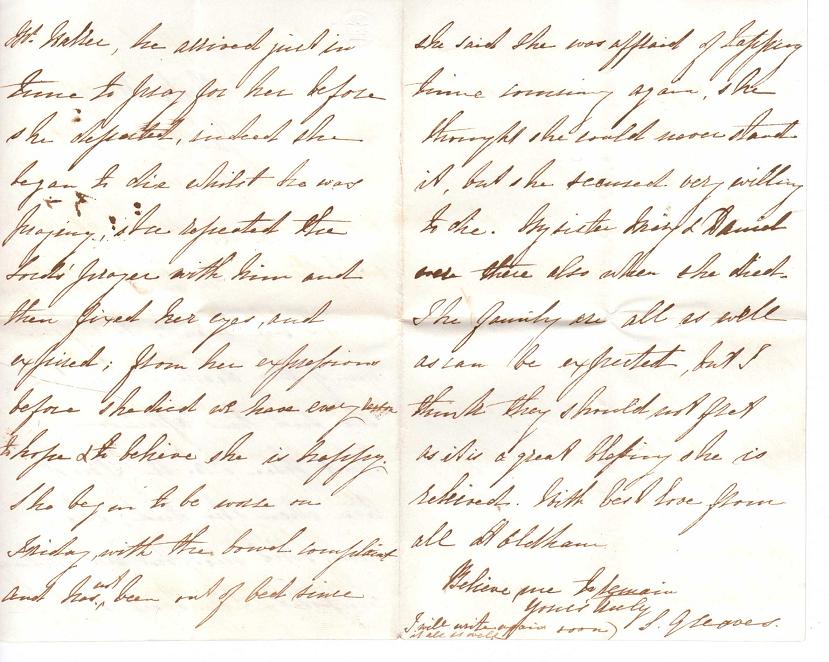 Mr Walker, he arrived just in
time to pray for her before
she departed, indeed she
began to die whilst he was
praying, she repeated the
Lords' prayer with him and
then fixed her eyes, and
expired; from her expressions
before she died we have every reason
to hope & to believe she is happy,
she began to be worse on
Friday, with the bowel complaint
and has not been out of bed since
she said she was affraid of tapping
time coming again, she
thought she could never stand
it, but she seemed very willing
to die. My sister Mary & Daniel
were there also when she died.
The family are all as well
as can be expected, but I
think they should not fret
as it is a great blessing she is
relieved. With best love from
all at Oldham
Believe me to remain
Yours truly
S. Greaves.
I will write again soon)